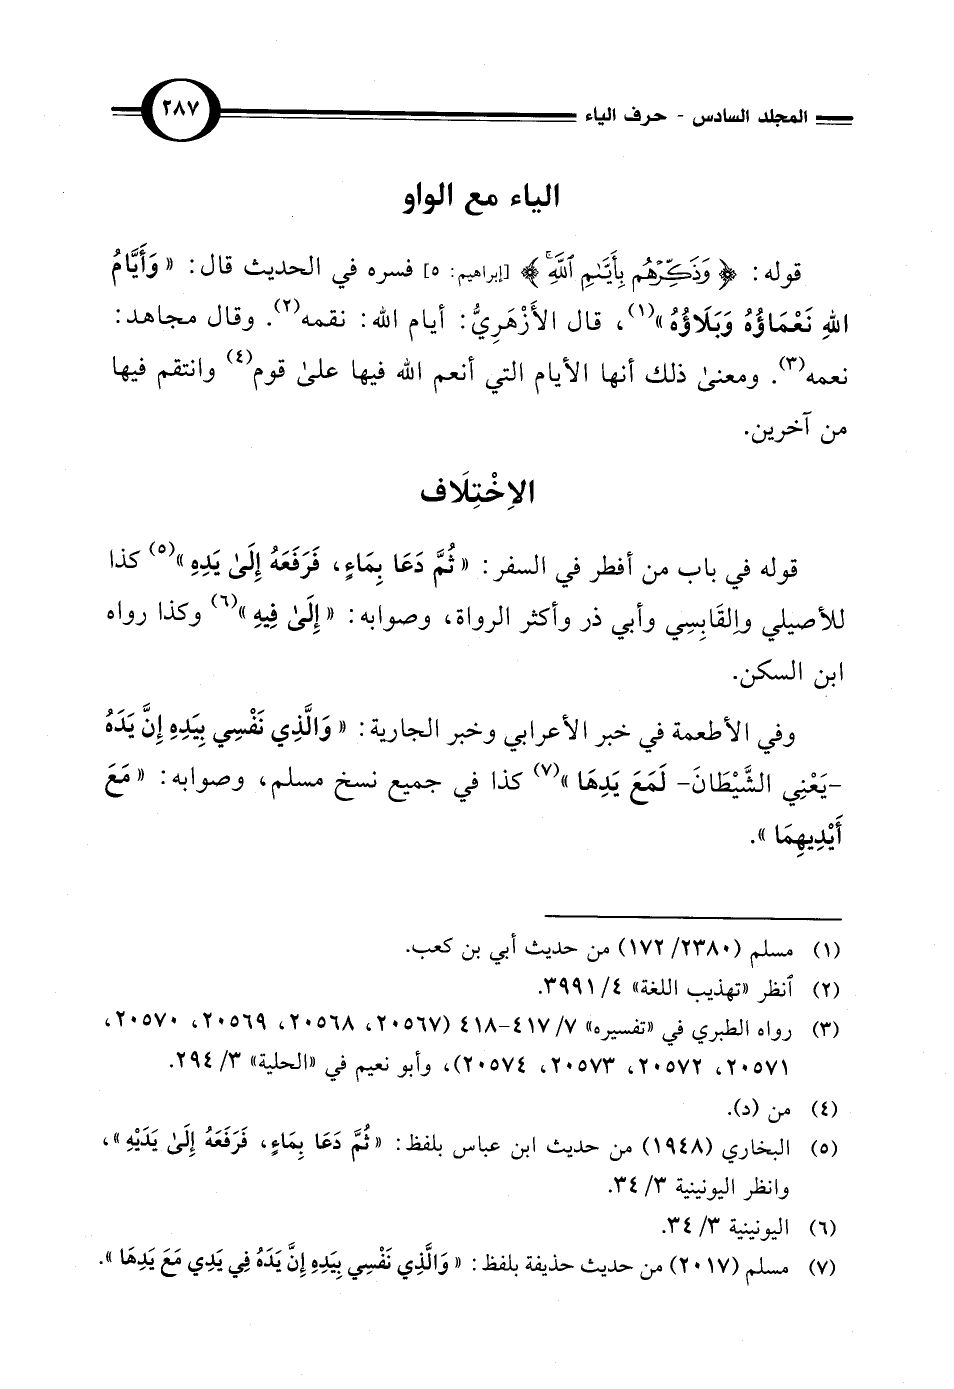 المجلد السادس - حرف الياء
٢٨٧
الياء مع الواو
قوله: ﴿وَذَكِّرْهُم بِأَيَّىٰمِ ٱللَّهِ﴾ [إبراهيم: ٥] فسره في الحديث قال: «وَأَيَّامُ
اللهِ نَعْمَاؤُهُ وَبَلَاؤُهُ»(١)، قال الأَزْهَرِيُّ: أيام الله: نقمه(٢). وقال مجاهد:
نعمه(٣). ومعنىٰ ذلك أنها الأيام التي أنعم الله فيها علىٰ قوم(٤) وانتقم فيها
من آخرين.
الاِخْتِلَاف
قوله في باب من أفطر في السفر: «ثُمَّ دَعَا بِمَاءٍ، فَرَفَعَهُ إِلَىٰ يَدِهِ»(٥) كذا
للأصيلي والقَابِسِي وأبي ذر وأكثر الرواة، وصوابه: «إِلَىٰ فِيهِ»(٦) وكذا رواه
ابن السكن.
وفي الأطعمة في خبر الأعرابي وخبر الجارية: «وَالَّذِي نَفْسِي بِيَدِهِ إِنَّ يَدَهُ
-يَعْنِي الشَّيْطَانَ- لَمَعَ يَدِهَا»(٧) كذا في جميع نسخ مسلم، وصوابه: «مَعَ
أَيْدِيهِمَا».
(١) مسلم (٢٣٨٠/ ١٧٢) من حديث أبي بن كعب.
(٢) ٱنظر «تهذيب اللغة» ٤/ ٣٩٩١.
(٣) رواه الطبري في «تفسيره» ٧/ ٤١٧-٤١٨ (٢٠٥٦٧، ٢٠٥٦٨، ٢٠٥٦٩، ٢٠٥٧٠،
٢٠٥٧١، ٢٠٥٧٢، ٢٠٥٧٣، ٢٠٥٧٤)، وأبو نعيم في «الحلية» ٣/ ٢٩٤.
(٤) من (د).
(٥) البخاري (١٩٤٨) من حديث ابن عباس بلفظ: «ثُمَّ دَعَا بِمَاءٍ، فَرَفَعَهُ إِلَىٰ يَدَيْهِ»،
وانظر اليونينية ٣/ ٣٤.
(٦) اليونينية ٣/ ٣٤.
(٧) مسلم (٢٠١٧) من حديث حذيفة بلفظ: «وَالَّذِي نَفْسِي بِيَدِهِ إِنَّ يَدَهُ فِي يَدِي مَعَ يَدِهَا».